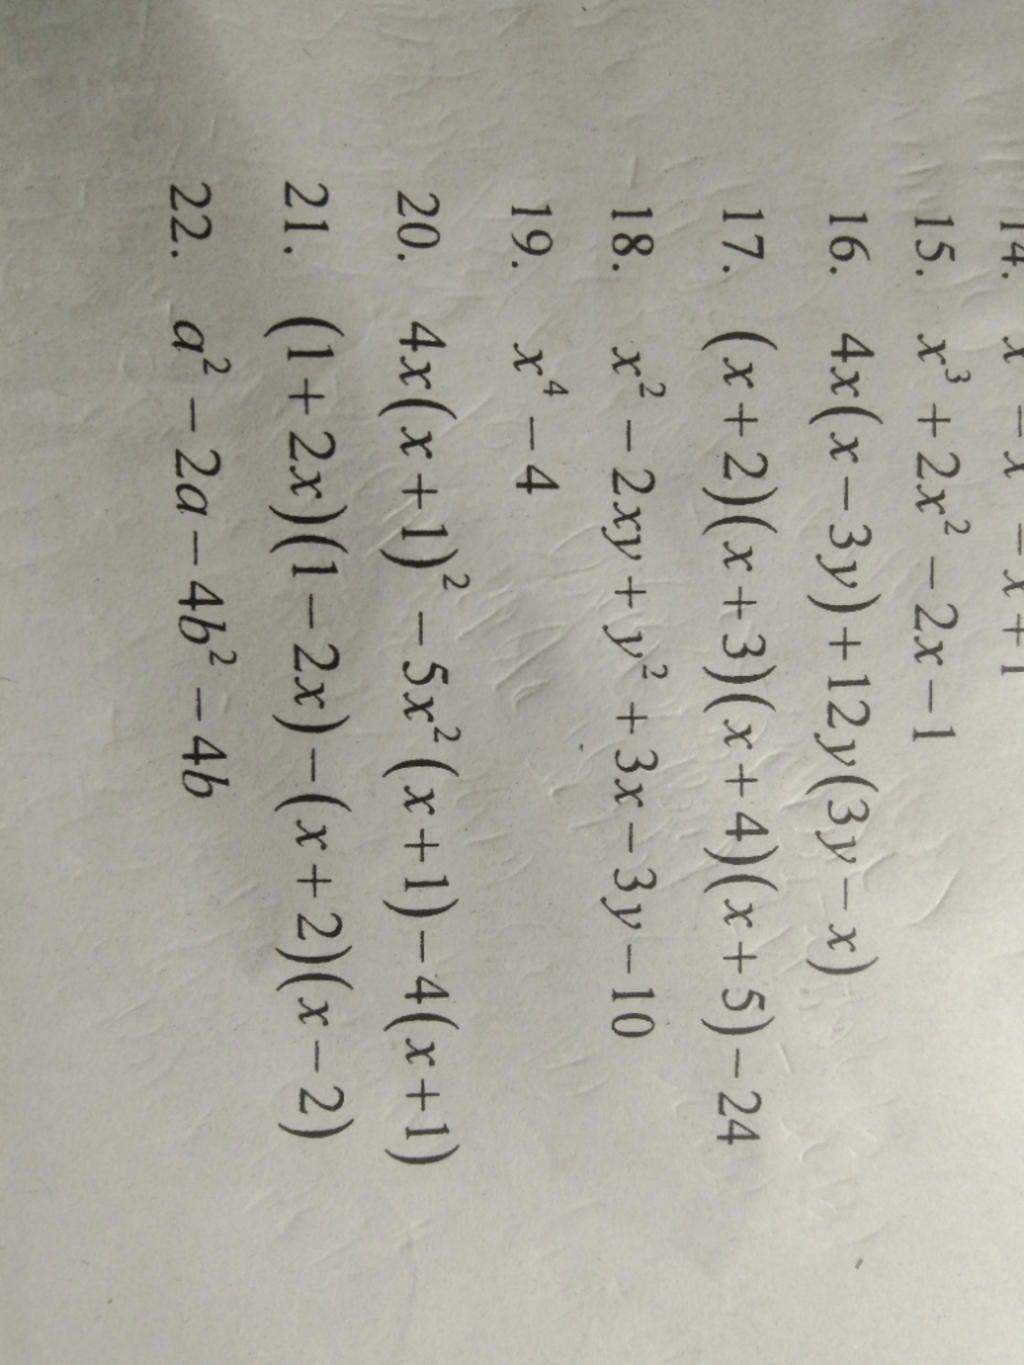 14. x - x - x + 1
15. x³ + 2x² - 2x - 1
16. 4x(x - 3y) + 12y(3y - x)
17. (x + 2)(x + 3)(x + 4)(x + 5) - 24
18. x² - 2xy + y² + 3x - 3y - 10
19. x⁴ - 4
20. 4x(x + 1)² - 5x²(x + 1) - 4(x + 1)
21. (1 + 2x)(1 - 2x) - (x + 2)(x - 2)
22. a² - 2a - 4b² - 4b